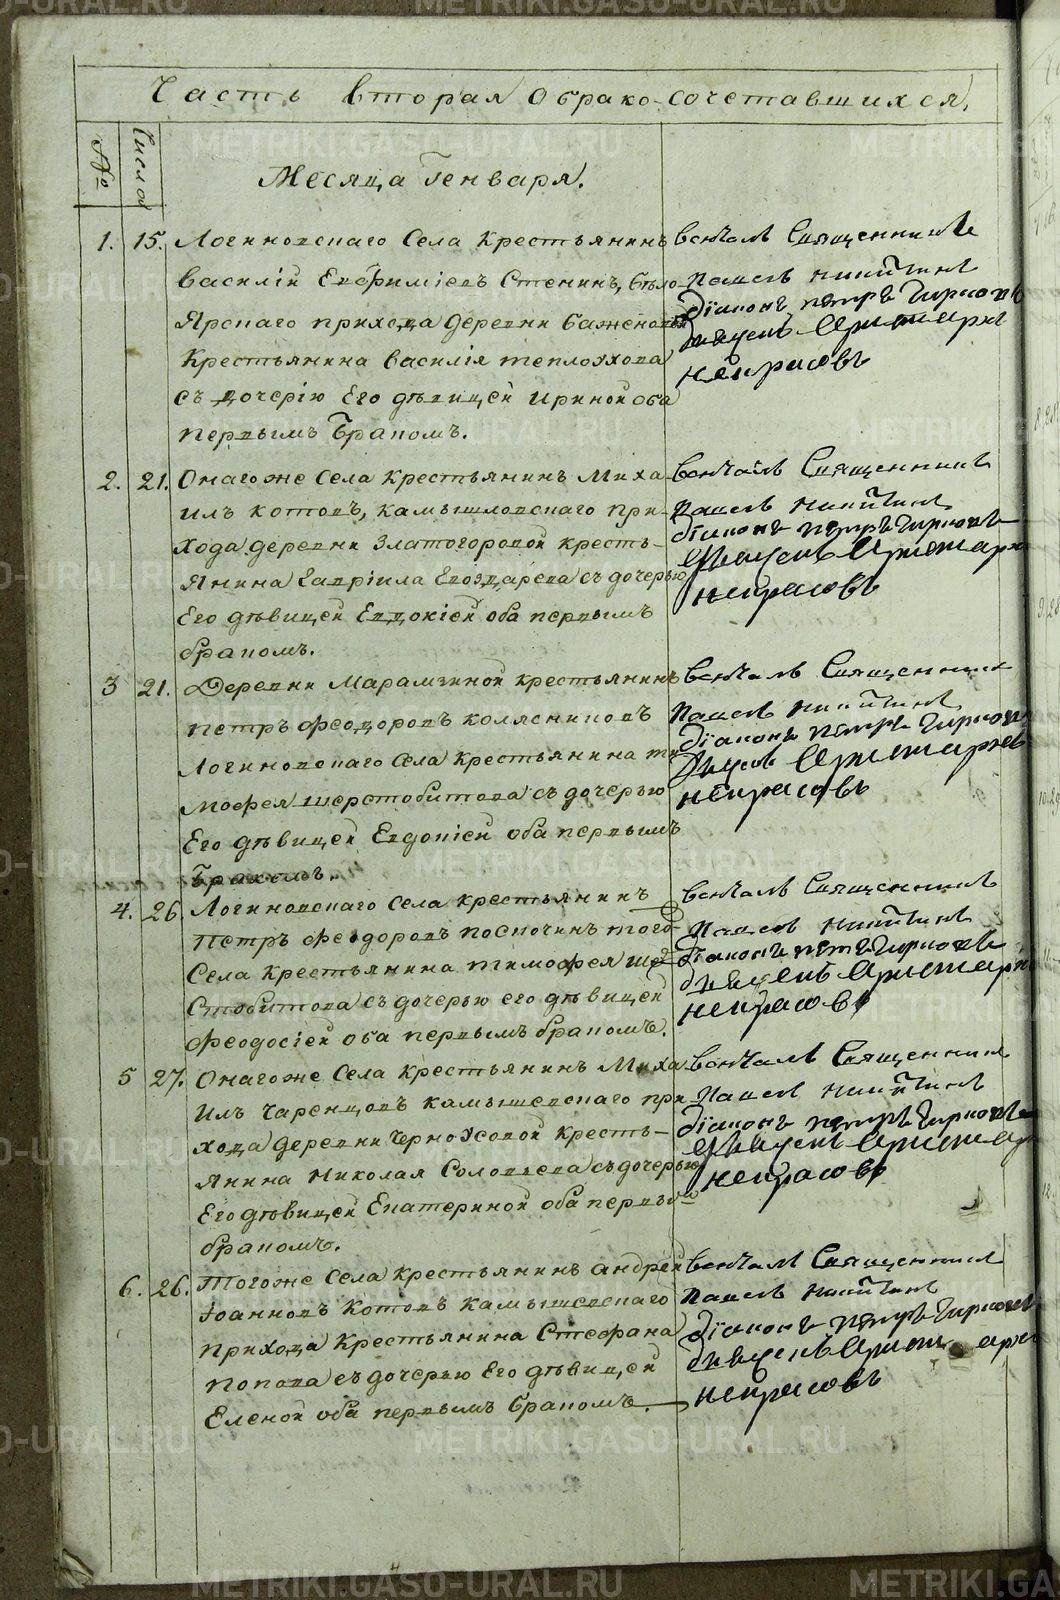 Часть вторая о брако-сочетавшихся,
№
Числа
Месяца Генваря.
1. 15. Логиновскаго Села Крестьянинъ
Василій Евфиміевъ Стенинъ, Бело-
Ярскаго прихода деревни Баженовой
Крестьянина Василія Теплоухова
съ дочерію Его дѣвицей Ириной оба
первымъ Бракомъ.
венчалъ Священникъ
Павелъ Никитинъ
діаконъ петръ
Некрасовъ
2. 21. Онагоже Села Крестьянинъ Миха-
илъ Котовъ, Камышловскаго при-
хода деревни Златогоровой кресть-
янина Гавріила съ дочерью
Его дѣвицей Евдокіей оба первымъ
бракомъ.
венчалъ Священникъ
Павелъ Никитинъ
діаконъ петръ
Некрасовъ
3 21. Деревни Марамзиной крестьянинъ
петръ Феодоровъ Колясниковъ
Логиновскаго Села крестьянина ти
мофея шерстобитова съ дочерью
Его дѣвицей Евдокіей оба первымъ
Бракомъ.
венчалъ Священникъ
Павелъ Никитинъ
діаконъ петръ
Некрасовъ
4. 26. Логиновскаго Села крестьянинъ
Петръ Феодоровъ Поскочинъ того-
Села крестьянина тимофея ше
Стобитова съ дочерью его дѣвицей
Феодосіей оба первымъ бракомъ.
венчалъ Священникъ
Павелъ Никитинъ
діаконъ петръ
Некрасовъ
5 27. Онагоже Села крестьянинъ Миха
илъ Чаренцовъ Камышевскаго при
хода деревни Черноусовой кресть-
янина Николая Соловьева съ дочерью
Его дѣвицей Екатериной оба первы
бракомъ.
венчалъ Священникъ
Павелъ Никитинъ
діаконъ петръ
Некрасовъ
6. 26. Тогоже Села крестьянинъ андрей
Іоанновъ Котовъ Камышевскаго
прихода Крестьянина Стефана
Попова съ дочерью Его дѣвицей
Еленой оба первымъ бракомъ.
венчалъ Священникъ
Павелъ Никитинъ
діаконъ петръ
Некрасовъ
METRIKI.GASO-URAL.RU